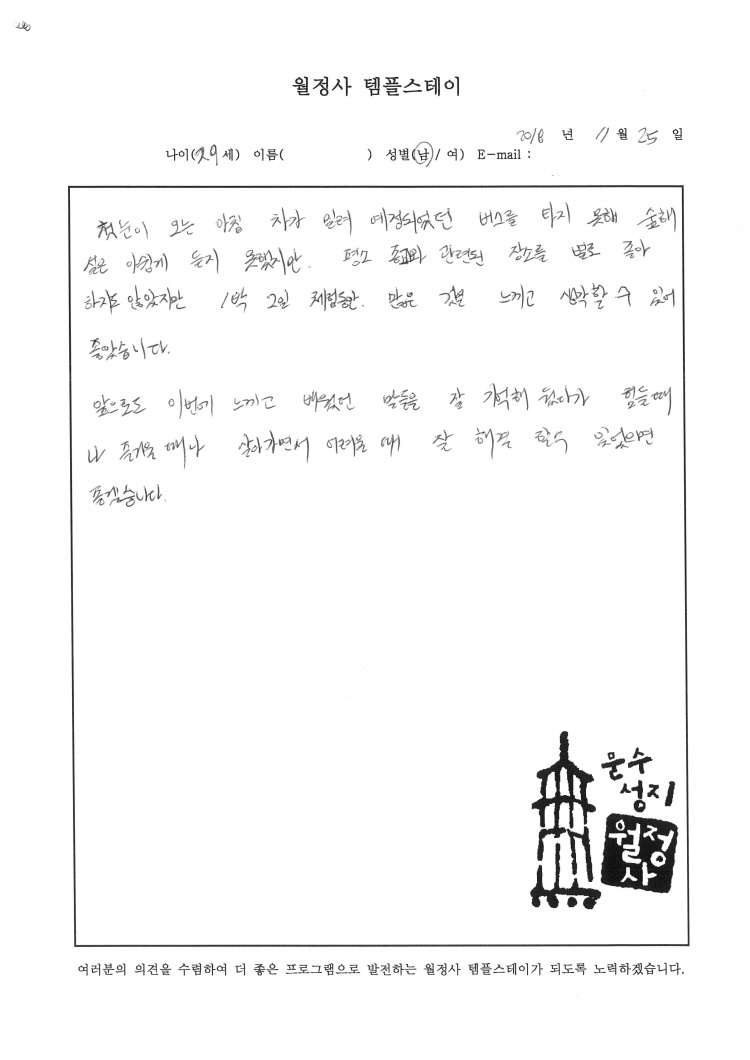 월정사 템플스테이
2018 년 11 월 25 일
나이(29세) 이름( ) 성별(남/여) E-mail :
첫눈이 오는 아침 차가 밀려 예정되었던 버스를 타지 못해
설은 아쉽게 듣지 못했지만. 평소 종교와 관련된 장소를 별로 좋아
하지도 않았지만 1박 2일 체험동안. 많은 것을 느끼고 생각할 수 있어
좋았습니다.
앞으로도 이번에 느끼고 배웠던 말들을 잘 기억해 뒀다가 힘들때
나 즐거울 때나 살아가면서 어려울 때 잘 해결 할수 있었으면
좋겠습니다.
문수
성지
월정
사
여러분의 의견을 수렴하여 더 좋은 프로그램으로 발전하는 월정사 템플스테이가 되도록 노력하겠습니다.